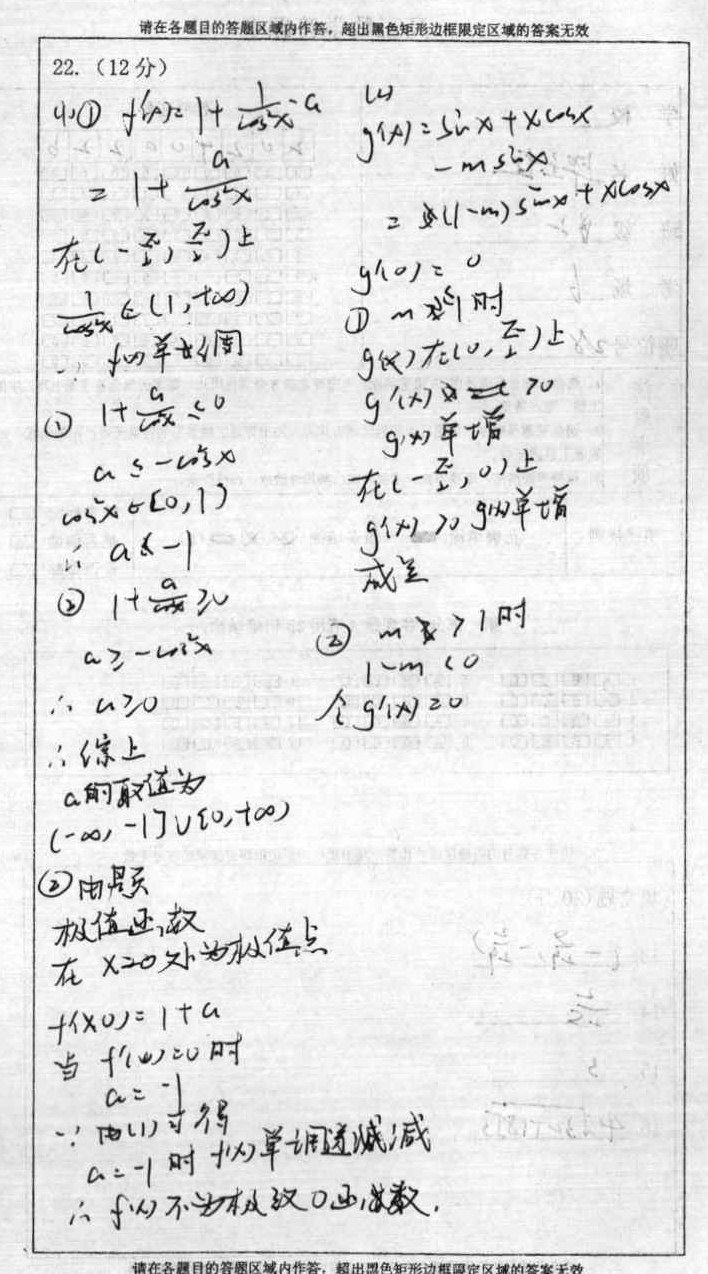 请在各题目的答题区域内作答，超出黑色矩形边框限定区域的答案无效
22.（12分）
(1)① f'(x)=1+1/cos²x·a
=1+a/cos²x
在(-π/2,π/2)上
1/cos²x∈(1,+∞)
∴f(x)单调
① 1+a/cos²x≤0
a≤-cos²x
cos²x∈[0,1)
∴a≤-1
② 1+a/cos²x≥0
a≥-cos²x
∴a≥0
∴综上
a的取值为
(-∞,-1]∪[0,+∞)
②由题
极值函数
在x=0处为极值点
f'(x0)=1+a
当f'(0)=0时
a=-1
∵由(1)可得
a=-1时f(x)单调递减
∴f(x)不为极致0函数.
g'(x)=sinx+xcosx
-msinx
=(1-m)sinx+xcosx
g'(0)=0
① m≤1时
g(x)在(0,π/2)上
g'(x)>0
g(x)单增
在(-π/2,0)上
g'(x)>0 g(x)单增
成立
② m>1时
1-m<0
令g'(x)=0
请在各题目的答题区域内作答，超出黑色矩形边框限定区域的答案无效